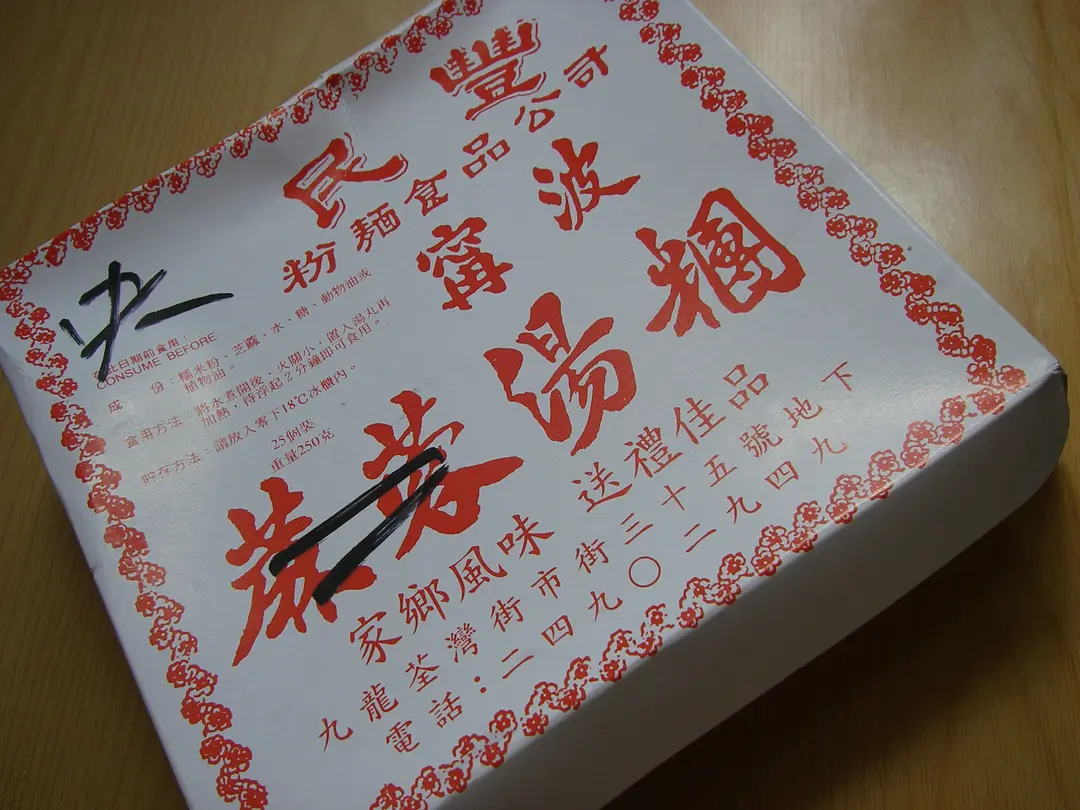 民豐
粉麵食品公司
寧波
蔴蓉湯糰
此日期前食用：
CONSUME BEFORE
成　份：糯米粉、芝蔴、水、糖、動物油或
植物油。
食用方法：將水煮開後、火關小，置入湯丸再
加熱，待浮起2分鐘即可食用。
貯存方法：請放入零下18℃冰櫃內。
25個裝
重量250克
家鄉風味 送禮佳品
九龍荃灣街市街三十五號地下
電話：二四九〇二九四九